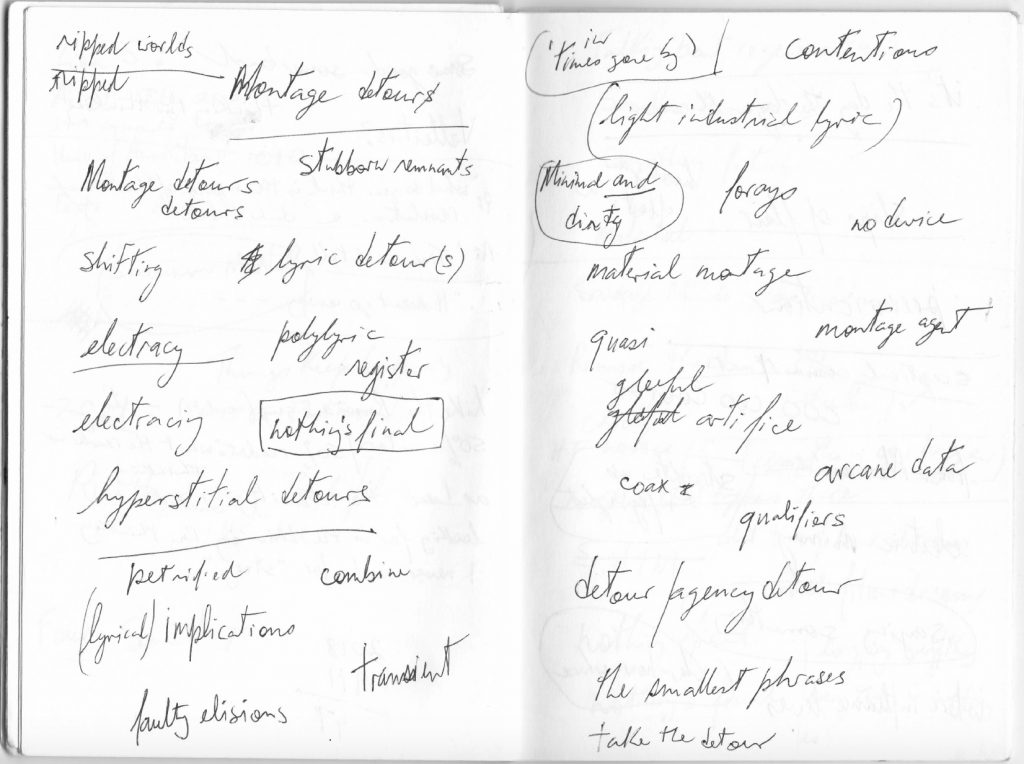 ripped worlds
ripped
Montage detours
stubborn remnants
Montage detours
detours
shifting
lyric detour(s)
electracy
polylyric
register
electracy
nothing's final
hyperstitial detours
petrified
combine
(lyrical) implications
transient
faulty elisions
('in
times gone by)
contentions
(light industrial lyric)
Minimal and
dirty
forays
no device
material montage
quasi
montage agent
gleeful
artifice
coax
arcane data
qualifiers
detour/agency detour
the smallest phrases
take the detour